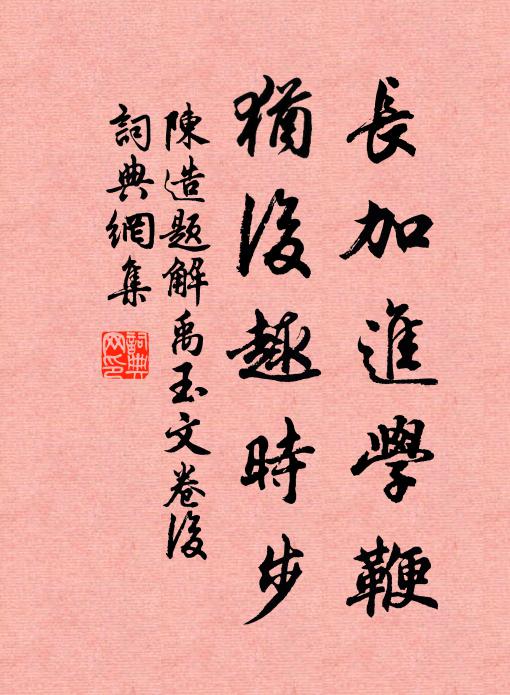 長加進學鞭
猶後趣時步
陳造題解禹玉文卷後
詞典網集
詞典網印